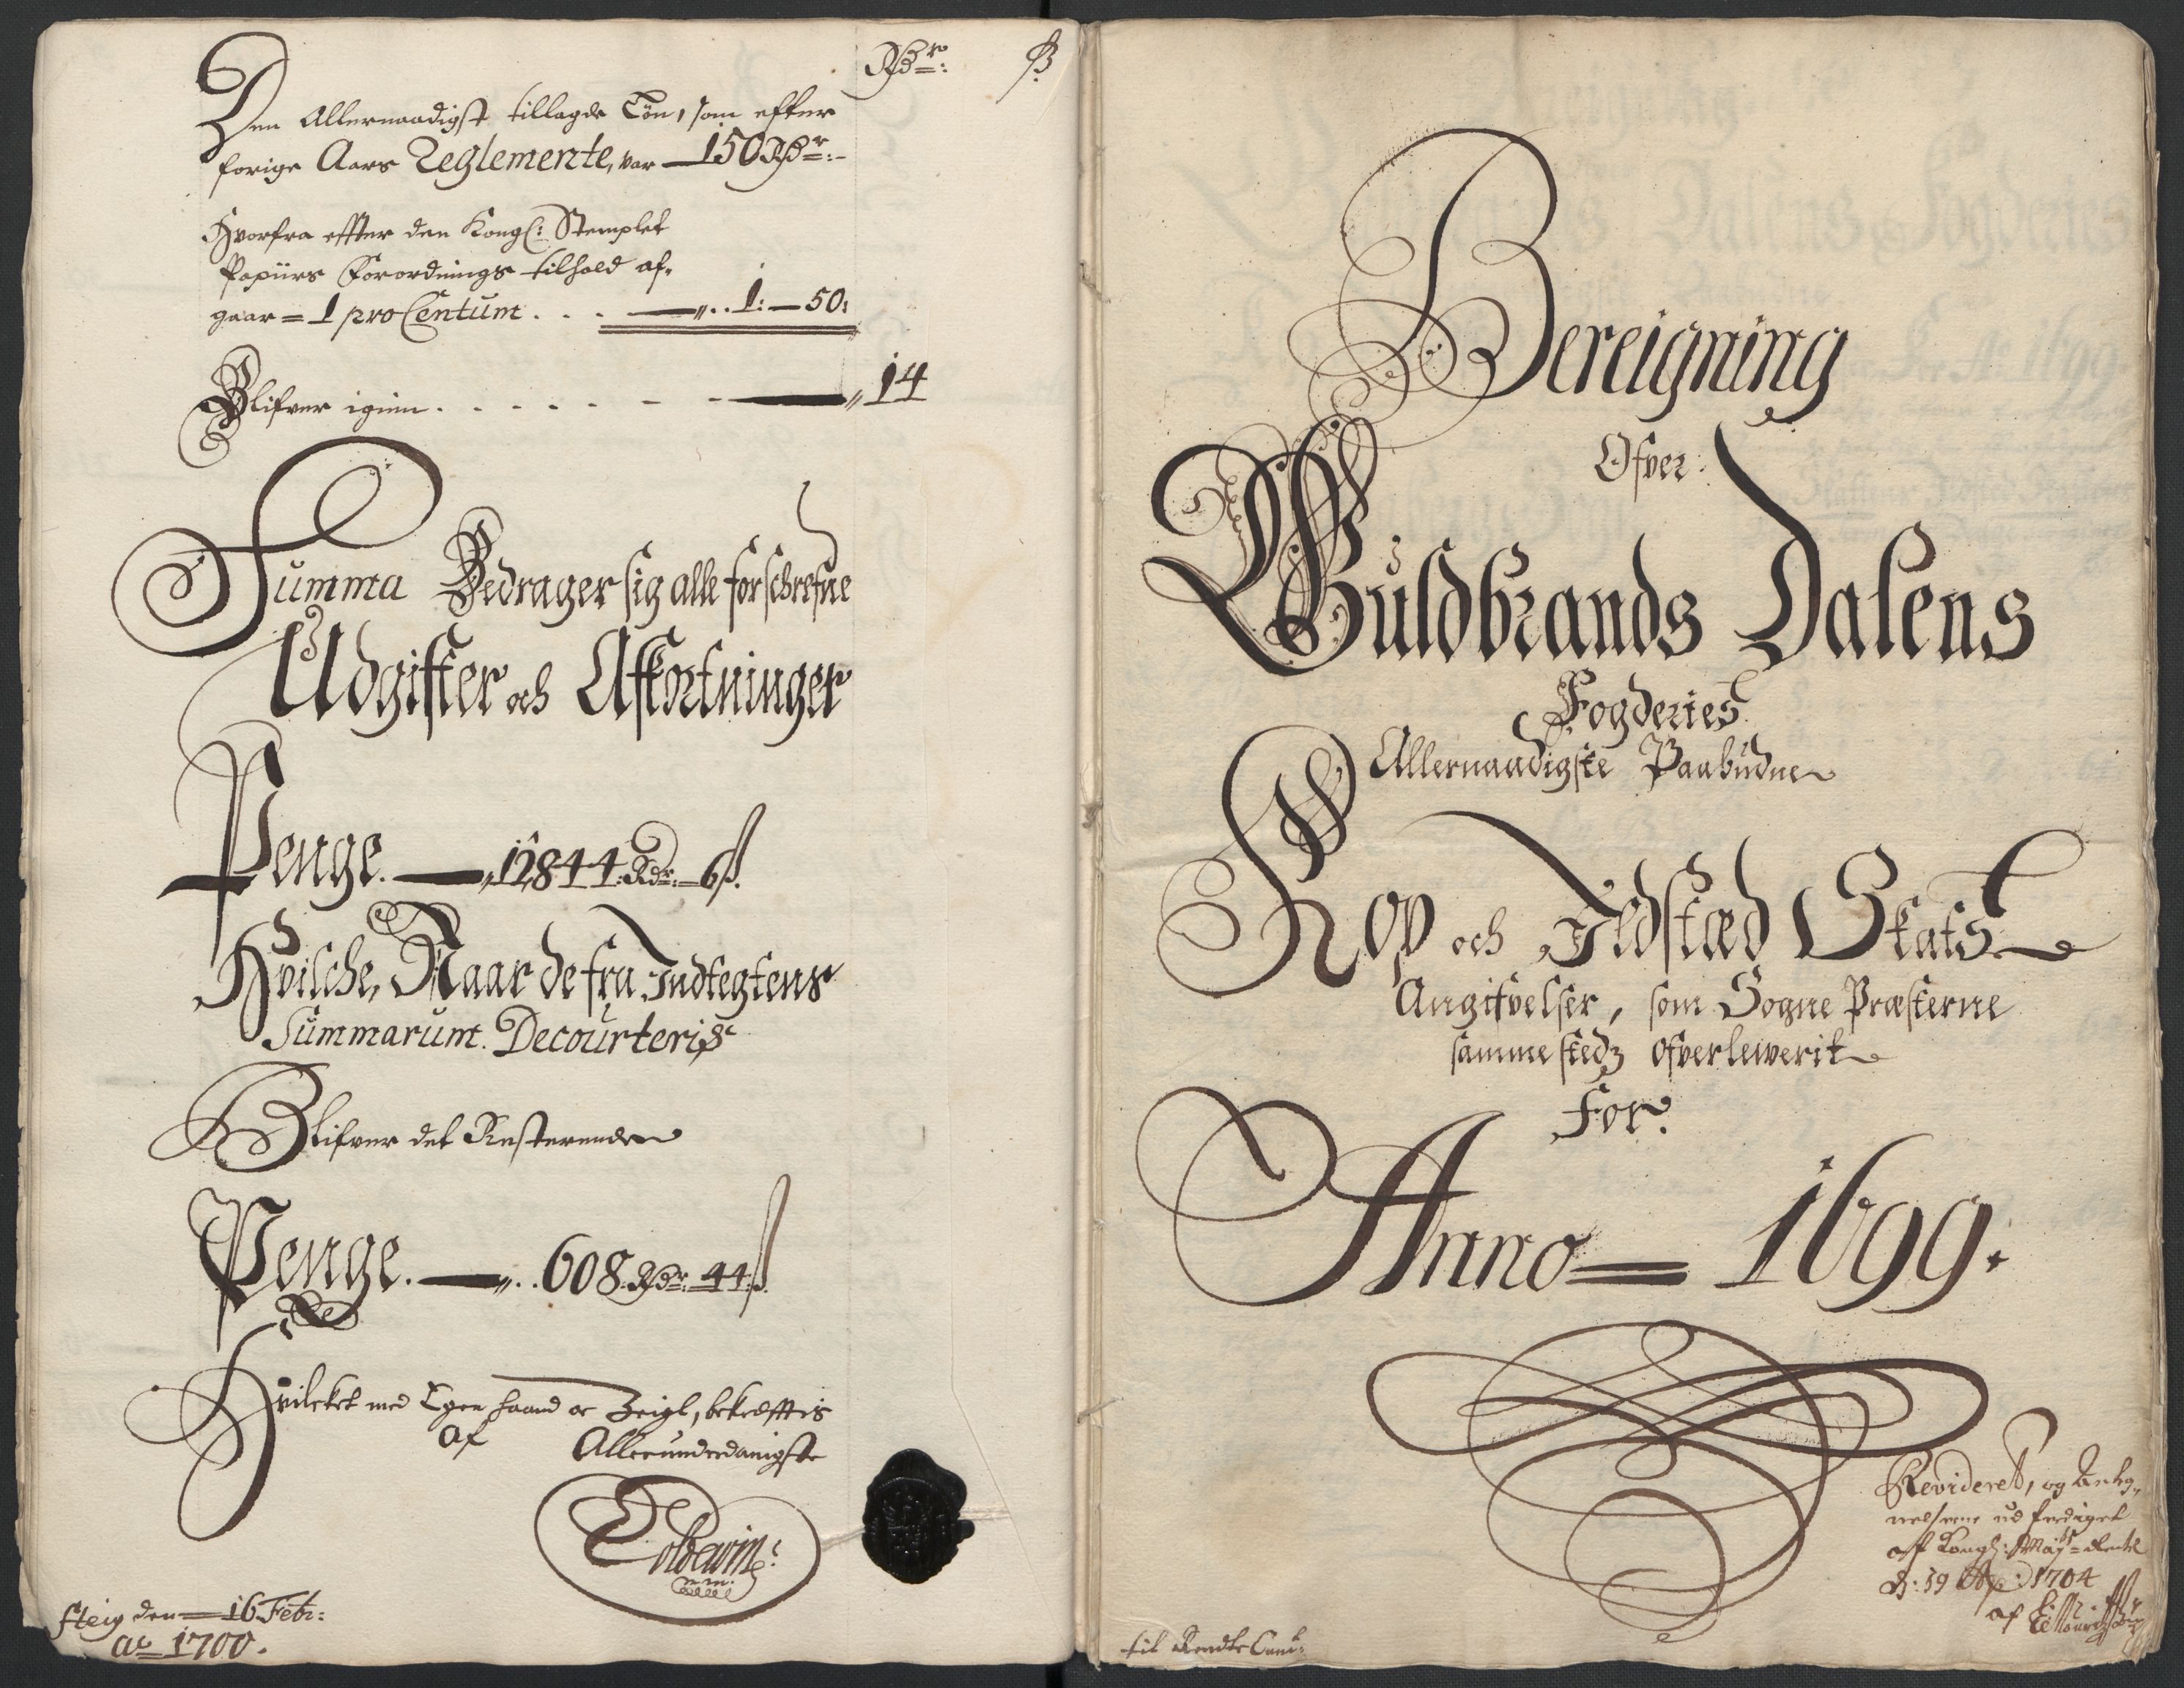 Rdr: ß
Den Allernaadigst tillagde Løn, som efter
forige Aars Reglemente, var — 150 Rdr:
Hvorfra effter den Kongl: Stemplet
Papiirs Forordnings tilhold af-
gaar = 1 pro Centum . . . — „ . . 1: — 50:
Blifver igien . . . . . . — — „ 14
Summa Bedrager sig alle forschrefne
Udgifter och Afkortninger
Penge. — „ 12844: Rdr: 6 ß.
Hvilche, Naar de fra Indtegtens
Summarum. Decourteris
Blifver det Resterende
Penge. — „ . . 608. Rdr: 44: ß.
Hvilcket med Egen haand oc Zeigl, bekræfftis
af Allerunderdanigste
m m.
Steig den — 16 Febr:
Ao 1700.
Bereigning
Ofver:
Guldbrands Dalens
Fogderies
Allernaadigste Paabudne
Kop och Ildsted Skats
Angifvelser, som Sogne Præsterne
samme stedz ofverlewerit
For.
Anno = 1699.
Revideret, og Anteg-
nelserne ud ferdiget
af Kongl: Mayts Rente
1704
af
til Rendte Cam: